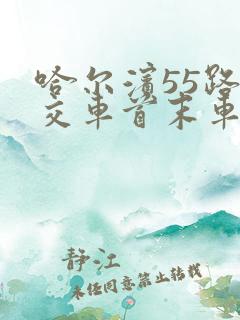 哈尔滨55路
交车首末车
静江
未经同意禁止转载